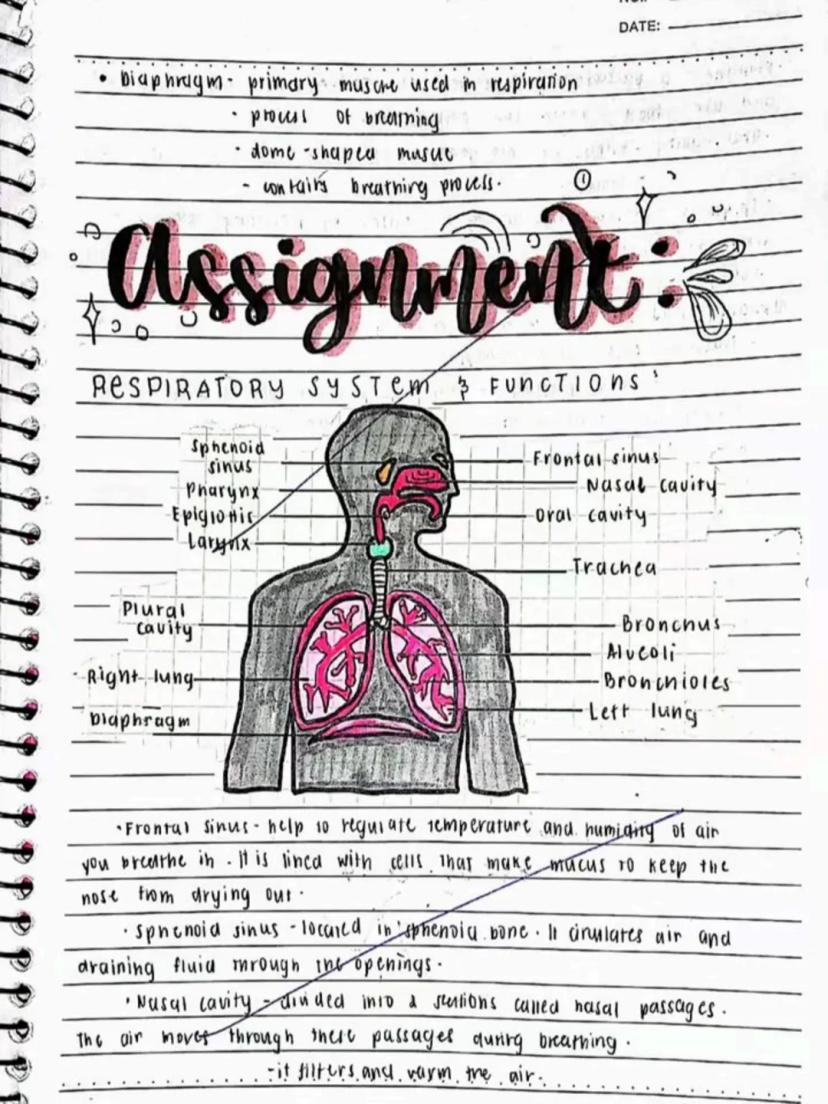 DATE:
• Diaphragm - primary muscle used in respiration
· process of breathing
· dome-shaped muscle
- contains breathing process.
assignment:
RESPIRATORY SYSTEM & FUNCTIONS
Sphenoid
sinus
Frontal sinus
Pharynx
Nasal cavity
Epiglottis
Oral cavity
Larynx
Trachea
Plural
cavity
Bronchus
Alveoli
Right lung
Bronchioles
Left lung
Diaphragm
•Frontal sinus - help to regulate temperature and humidity of air
you breathe in. It is lined with cells that make mucus to keep the
nose from drying out.
•Sphenoid sinus - located in sphenoid bone. It circulates air and
draining fluid through the openings.
•Nasal cavity - divided into 2 sections called nasal passages.
The air moves through these passages during breathing.
-it filters and warm the air.